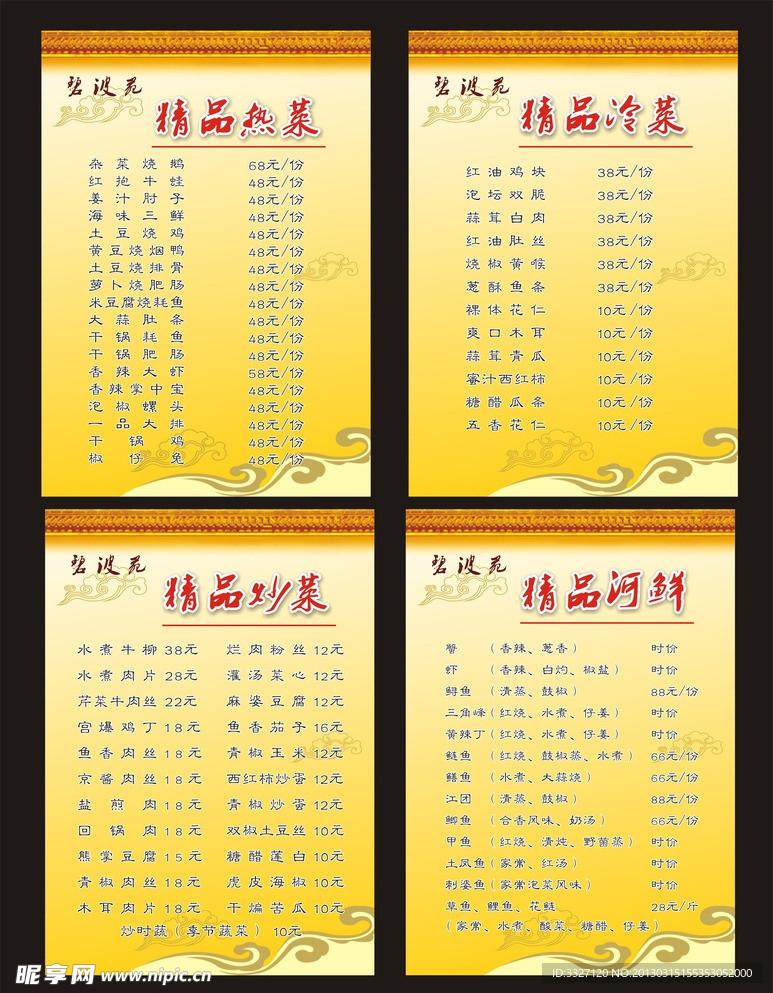 碧波苑
精品热菜
杂菜烧鹅 68元/份
红抱牛蛙 48元/份
姜汁肘子 48元/份
海味三鲜 48元/份
土豆烧鸡 48元/份
黄豆烧烟鸭 48元/份
土豆烧排骨 48元/份
萝卜烧肥肠 48元/份
米豆腐烧耗鱼 48元/份
大蒜肚条 48元/份
干锅耗鱼 48元/份
干锅肥肠 48元/份
香辣大虾 58元/份
香辣掌中宝 48元/份
泡椒螺头 48元/份
一品大排 48元/份
干锅鸡 48元/份
椒仔兔 48元/份
碧波苑
精品冷菜
红油鸡块 38元/份
泡坛双脆 38元/份
蒜茸白肉 38元/份
红油肚丝 38元/份
烧椒黄喉 38元/份
葱酥鱼条 38元/份
裸体花仁 10元/份
爽口木耳 10元/份
蒜茸青瓜 10元/份
蜜汁西红柿 10元/份
糖醋瓜条 10元/份
五香花仁 10元/份
碧波苑
精品炒菜
水煮牛柳 38元 烂肉粉丝 12元
水煮肉片 28元 灌汤菜心 12元
芹菜牛肉丝 22元 麻婆豆腐 12元
宫爆鸡丁 18元 鱼香茄子 16元
鱼香肉丝 18元 青椒玉米 12元
京酱肉丝 18元 西红柿炒蛋 12元
盐煎肉 18元 青椒炒蛋 12元
回锅肉 18元 双椒土豆丝 10元
熊掌豆腐 15元 糖醋莲白 10元
青椒肉丝 18元 虎皮海椒 10元
木耳肉片 18元 干煸苦瓜 10元
炒时蔬（季节蔬菜） 10元
碧波苑
精品河鲜
蟹 （香辣、葱香） 时价
虾 （香辣、白灼、椒盐） 时价
鲟鱼 （清蒸、鼓椒） 88元/份
三角峰（红烧、水煮、仔姜） 时价
黄辣丁（红烧、水煮、仔姜） 时价
鲢鱼 （红烧、鼓椒蒸、水煮） 66元/份
鳝鱼 （水煮、大蒜烧） 时价
江团 （清蒸、鼓椒） 88元/份
鲫鱼 （合香风味、奶汤） 66元/份
甲鱼 （红烧、清炖、野菌蒸） 时价
土凤鱼（家常、红汤） 时价
刺婆鱼（家常泡菜风味） 时价
草鱼、鲤鱼、花鲢 28元/斤
（家常、水煮、酸菜、糖醋、仔姜）
昵享网 www.nipic.cn
ID:3327120 NO:20130315155353052000